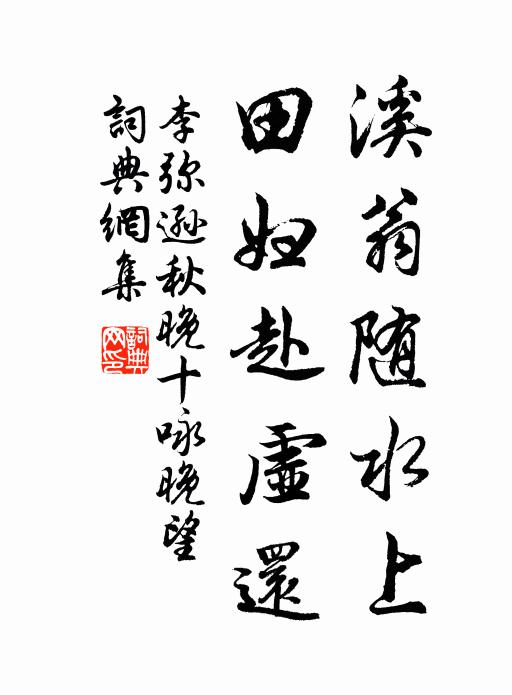 溪翁随水上
田妇赴虚還
李弥遜秋晚十咏晚望
詞典網集
詞典网印